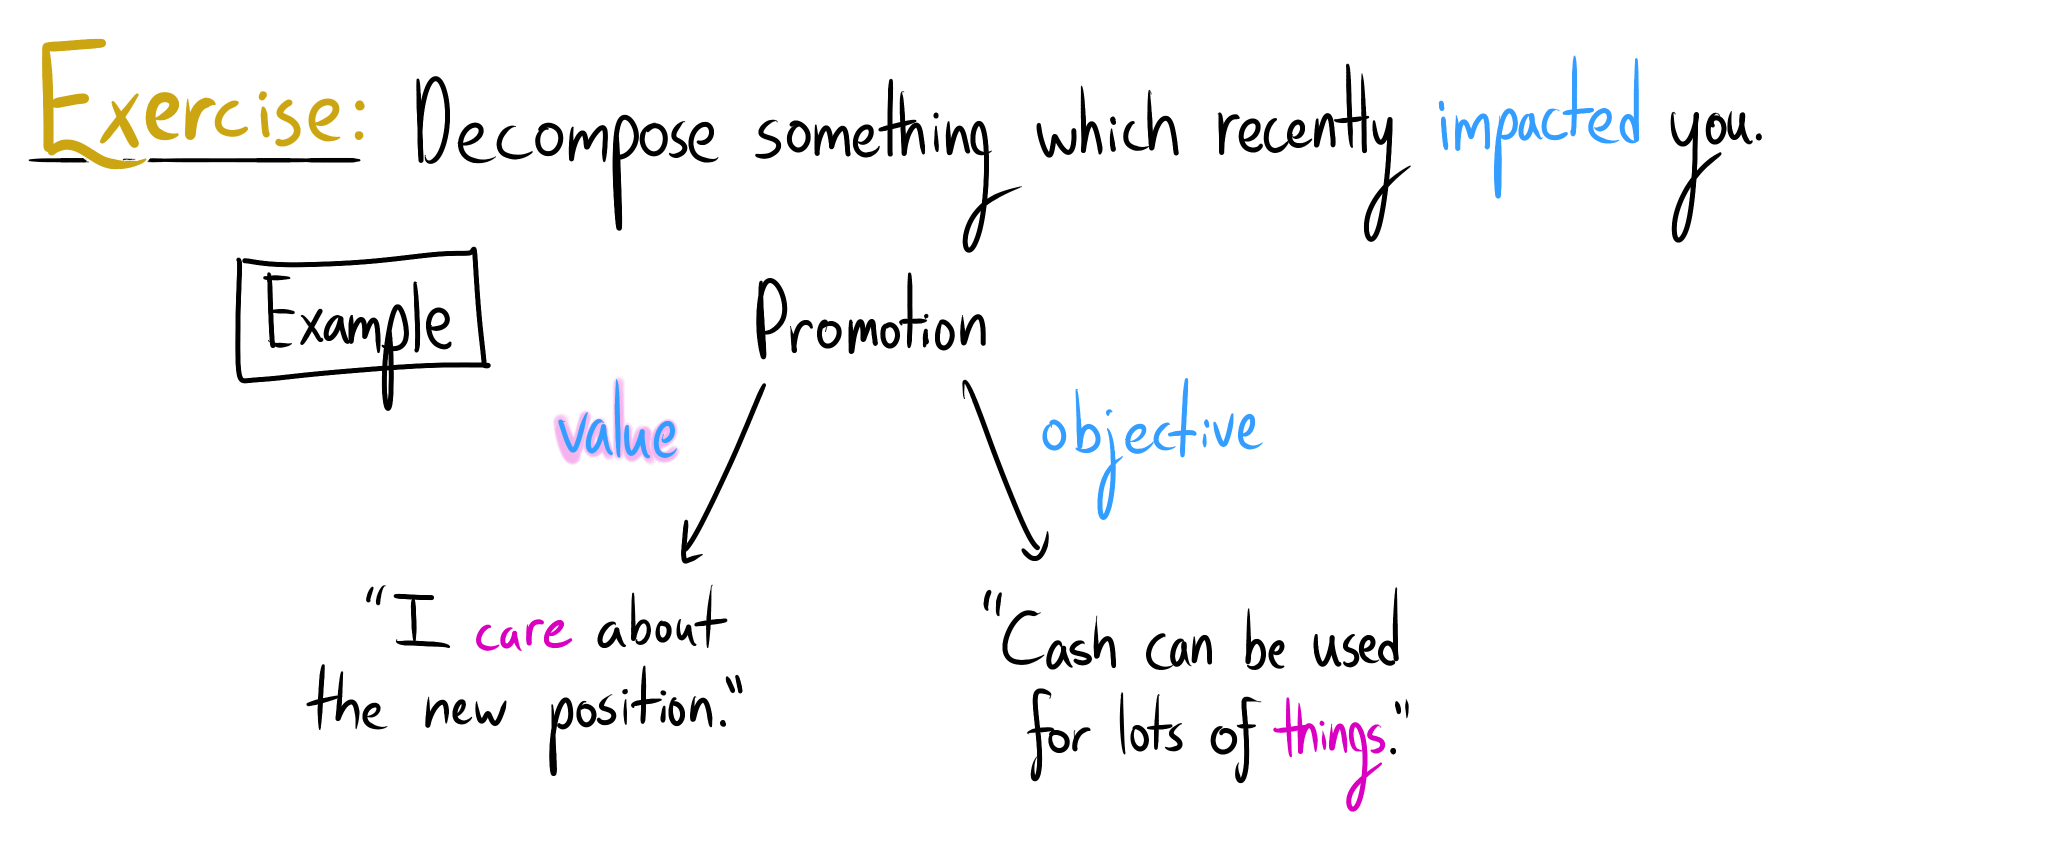 Exercise: Decompose something which recently impacted you.
Example
Promotion
value
objective
"I care about
the new position."
"Cash can be used
for lots of things."